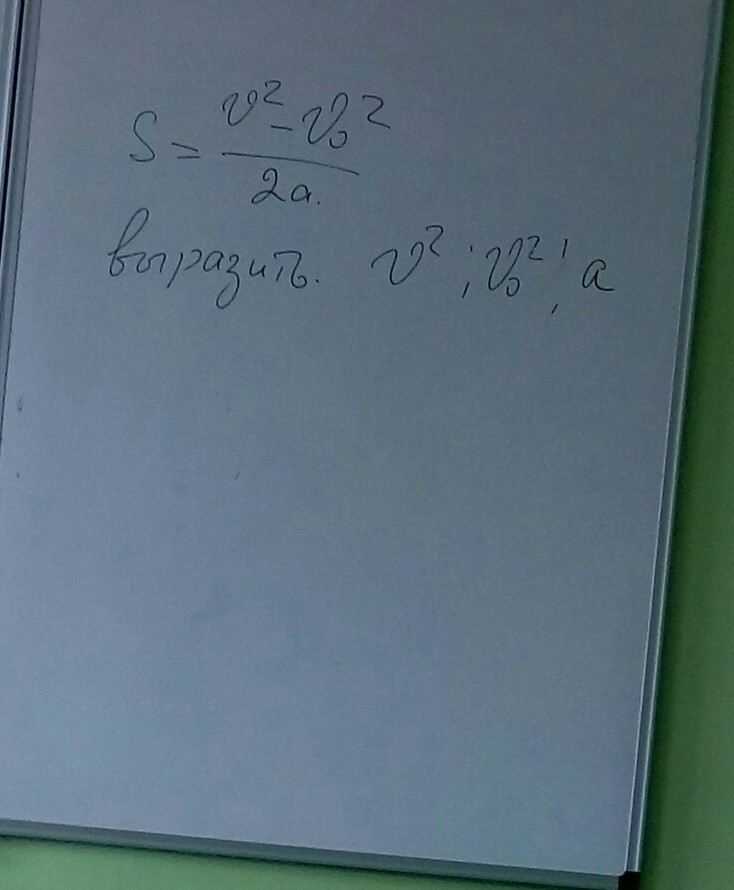 S = \frac{v^2 - v_0^2}{2a.}
выразить. v^2; v_0^2; a